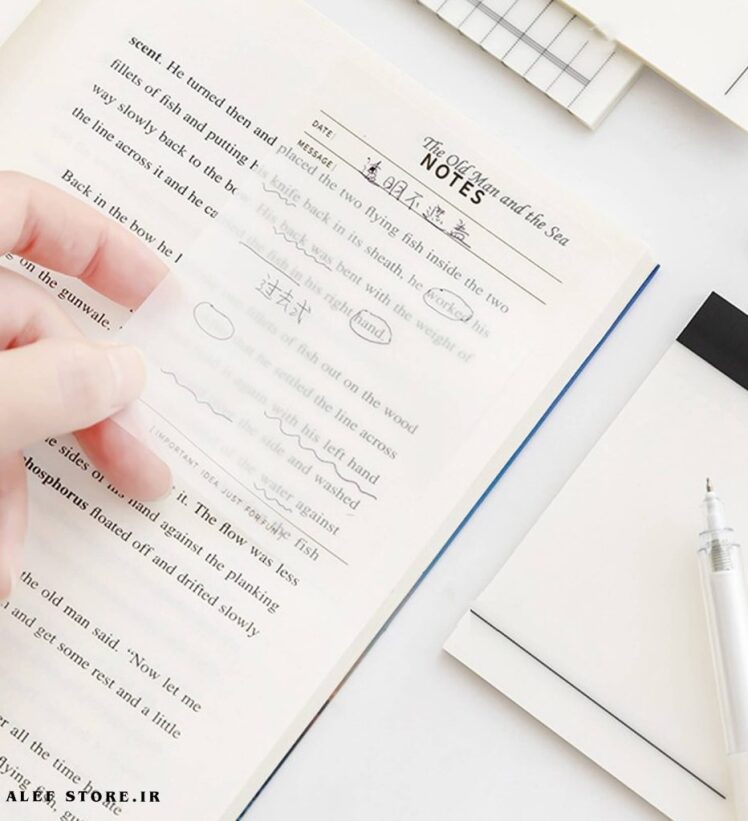 The Old Man and the Sea
NOTES
DATE:
MESSAGE:
透明不遮盖
scent. He turned then and placed the two flying fish inside the two
fillets of fish and putting his knife back in its sheath, he worked his
way slowly back to the bow. His back was bent with the weight of
the line across it and he carried the fish in his right hand.
过去式
Back in the bow he l fillets of fish out on the wood
that he settled the line across
on the gunwale. again with his left hand
the side and washed
of the water against
the fish
IMPORTANT IDEA JUST FOR FUN
the sides of his hand against it. The flow was less
phosphorus floated off and drifted slowly
the old man said. “Now let me
and get some rest and a little
er all the time he ate
flying fish, gu
ALEF STORE.IR